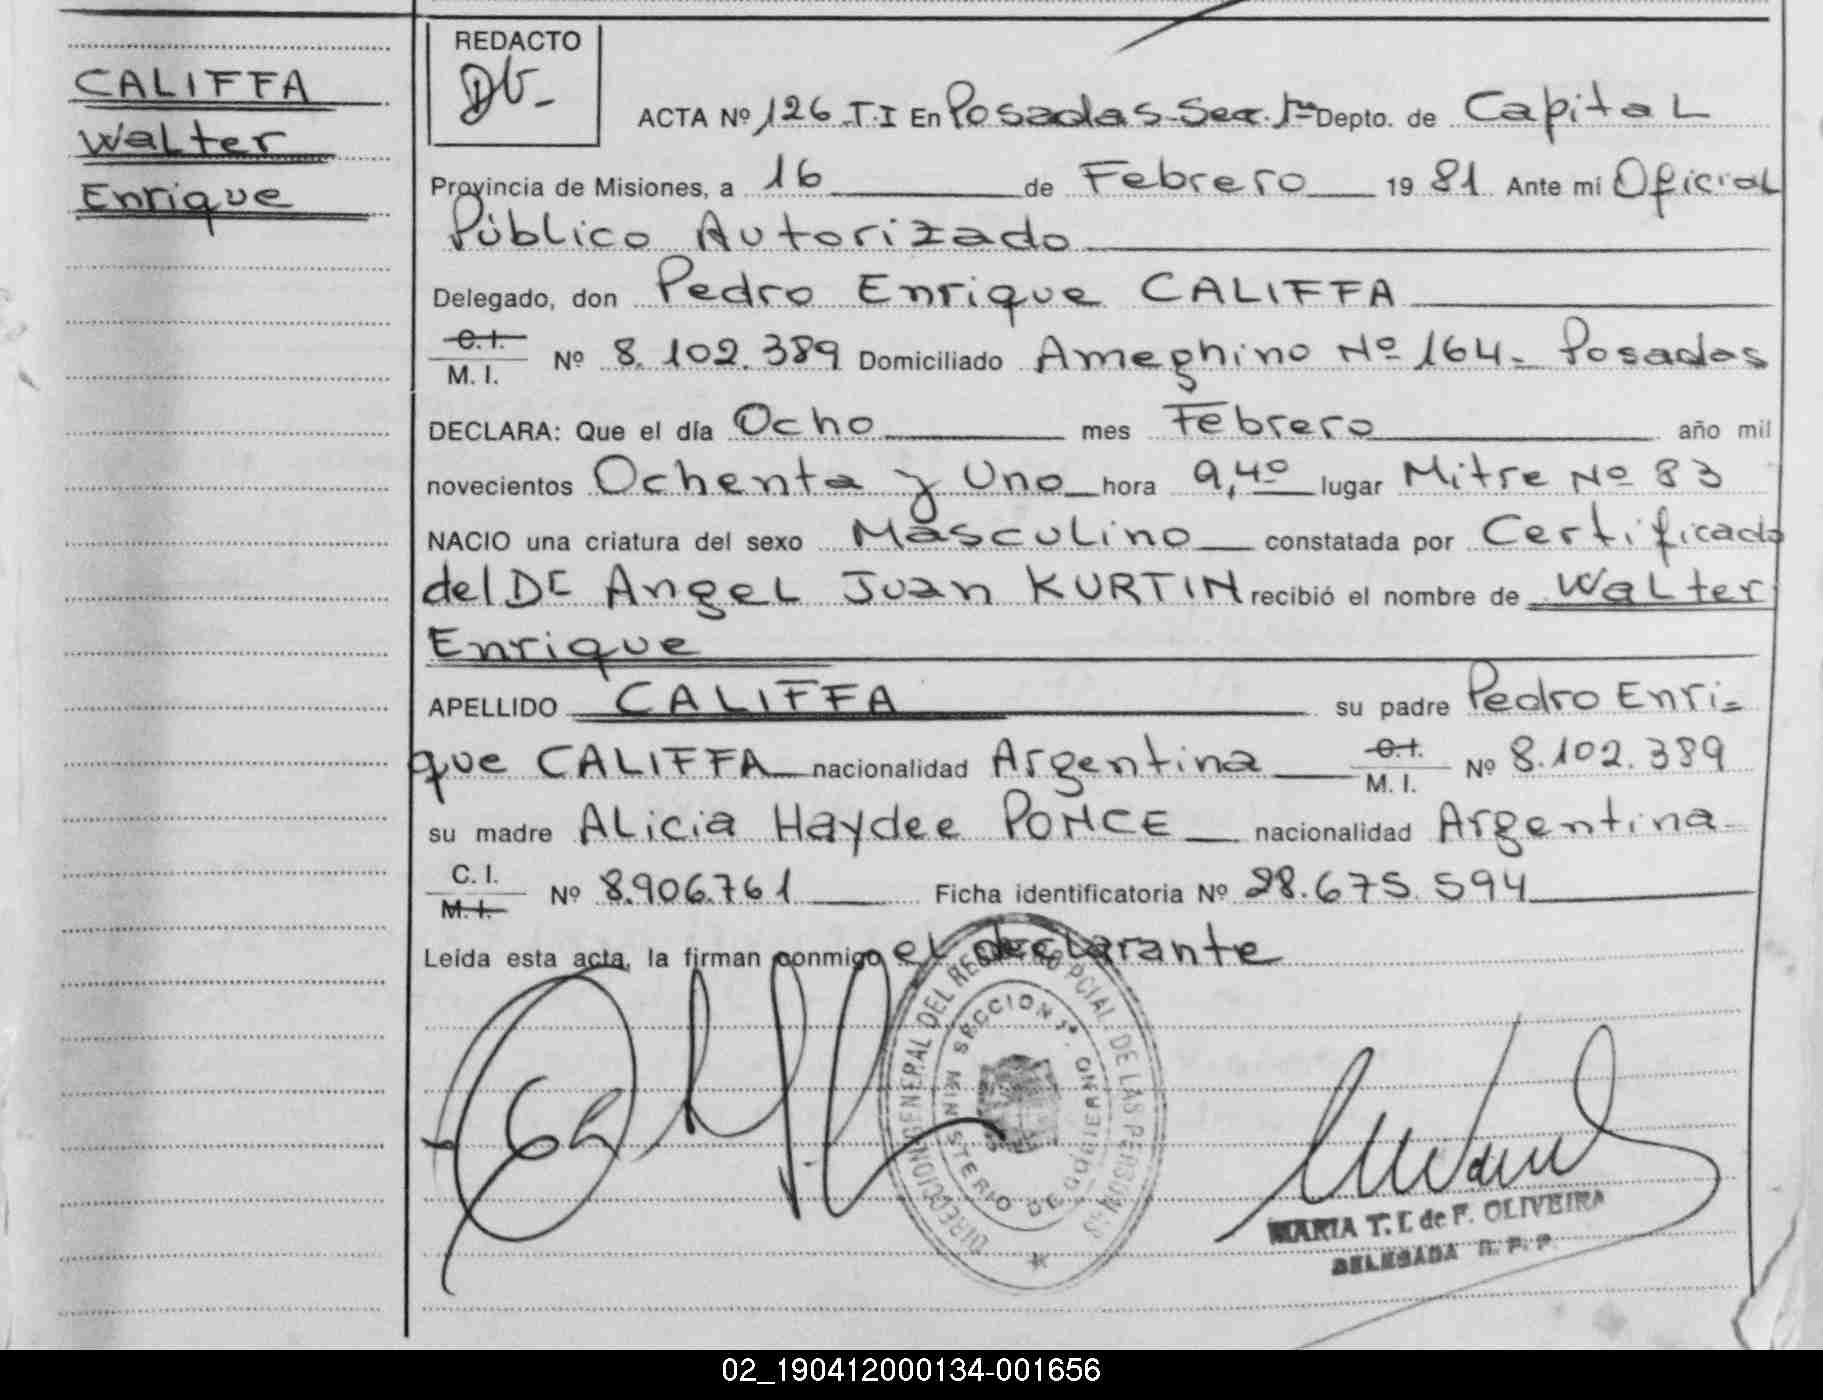 CALIFFA
Walter
Enrique
REDACTO
ACTA Nº 126 T.I En Posadas-Sec. 1ra Depto. de Capital
Provincia de Misiones, a 16 de Febrero 19 81 Ante mí Oficial
Público Autorizado
Delegado, don Pedro Enrique CALIFFA
C.I.
M. I. Nº 8.102.389 Domiciliado Ameghino Nº 164- Posadas
DECLARA: Que el día Ocho mes Febrero año mil
novecientos Ochenta y Uno hora 9,40 lugar Mitre Nº 83
NACIO una criatura del sexo Masculino constatada por Certificado
del Dr Angel Juan KURTIN recibió el nombre de Walter
Enrique
APELLIDO CALIFFA su padre Pedro Enri-
que CALIFFA nacionalidad Argentina C.I. M. I. Nº 8.102.389
su madre Alicia Haydee PONCE nacionalidad Argentina
C. I.
M.I. Nº 8.906.761 Ficha identificatoria Nº 28.675.594
Leída esta acta, la firman conmigo el declarante
DIRECCION GENERAL DEL REGISTRO PCIAL. DE LAS PERSONAS
SECCION 1ª.
MINISTERIO DE GOBIERNO
MARIA T. I. de F. OLIVEIRA
DELEGADA R. P. P.
02_190412000134-001656